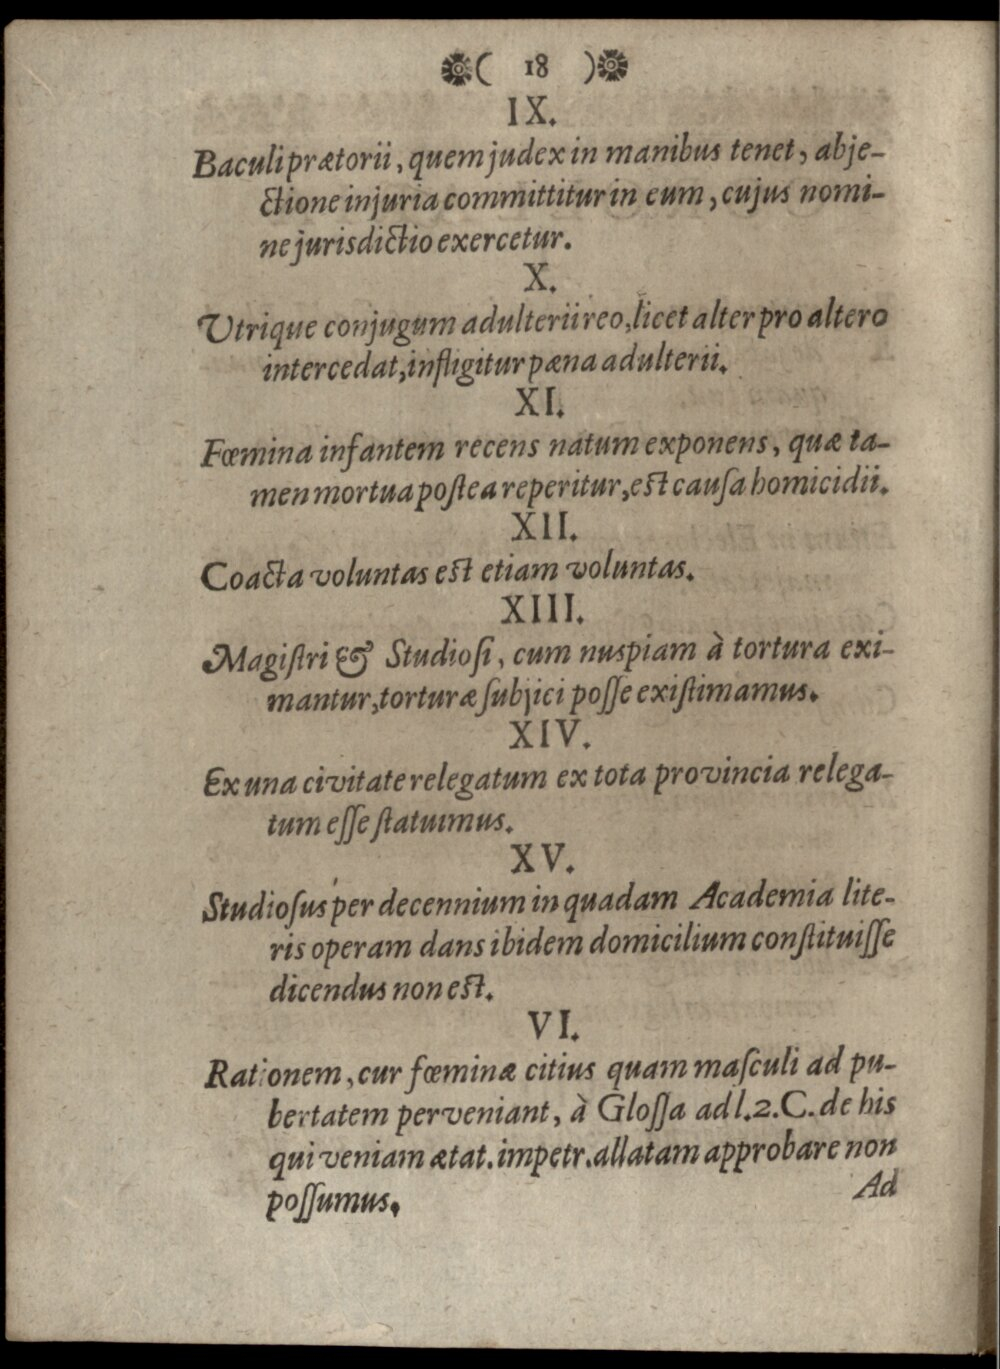 ( 18 )
IX.
Baculi prætorii, quem judex in manibus tenet, abje-
ctione injuria committitur in eum, cujus nomi-
ne jurisdictio exercetur.
X.
Utrique conjugum adulterii reo, licet alter pro altero
intercedat, infligitur pæna adulterii.
XI.
Fœmina infantem recens natum exponens, quæ ta-
men mortua postea reperitur, est causa homicidii.
XII.
Coacta voluntas est etiam voluntas.
XIII.
Magistri & Studiosi, cum nuspiam à tortura exi-
mantur, torturæ subjici posse existimamus.
XIV.
Ex una civitate relegatum ex tota provincia relega-
tum esse statuimus.
XV.
Studiosus per decennium in quadam Academia lite-
ris operam dans ibidem domicilium constituisse
dicendus non est.
VI.
Rationem, cur fœminæ citius quam masculi ad pu-
bertatem perveniant, à Glossa ad l. 2. C. de his
qui veniam ætat. impetr. allatam approbare non
possumus.
Ad